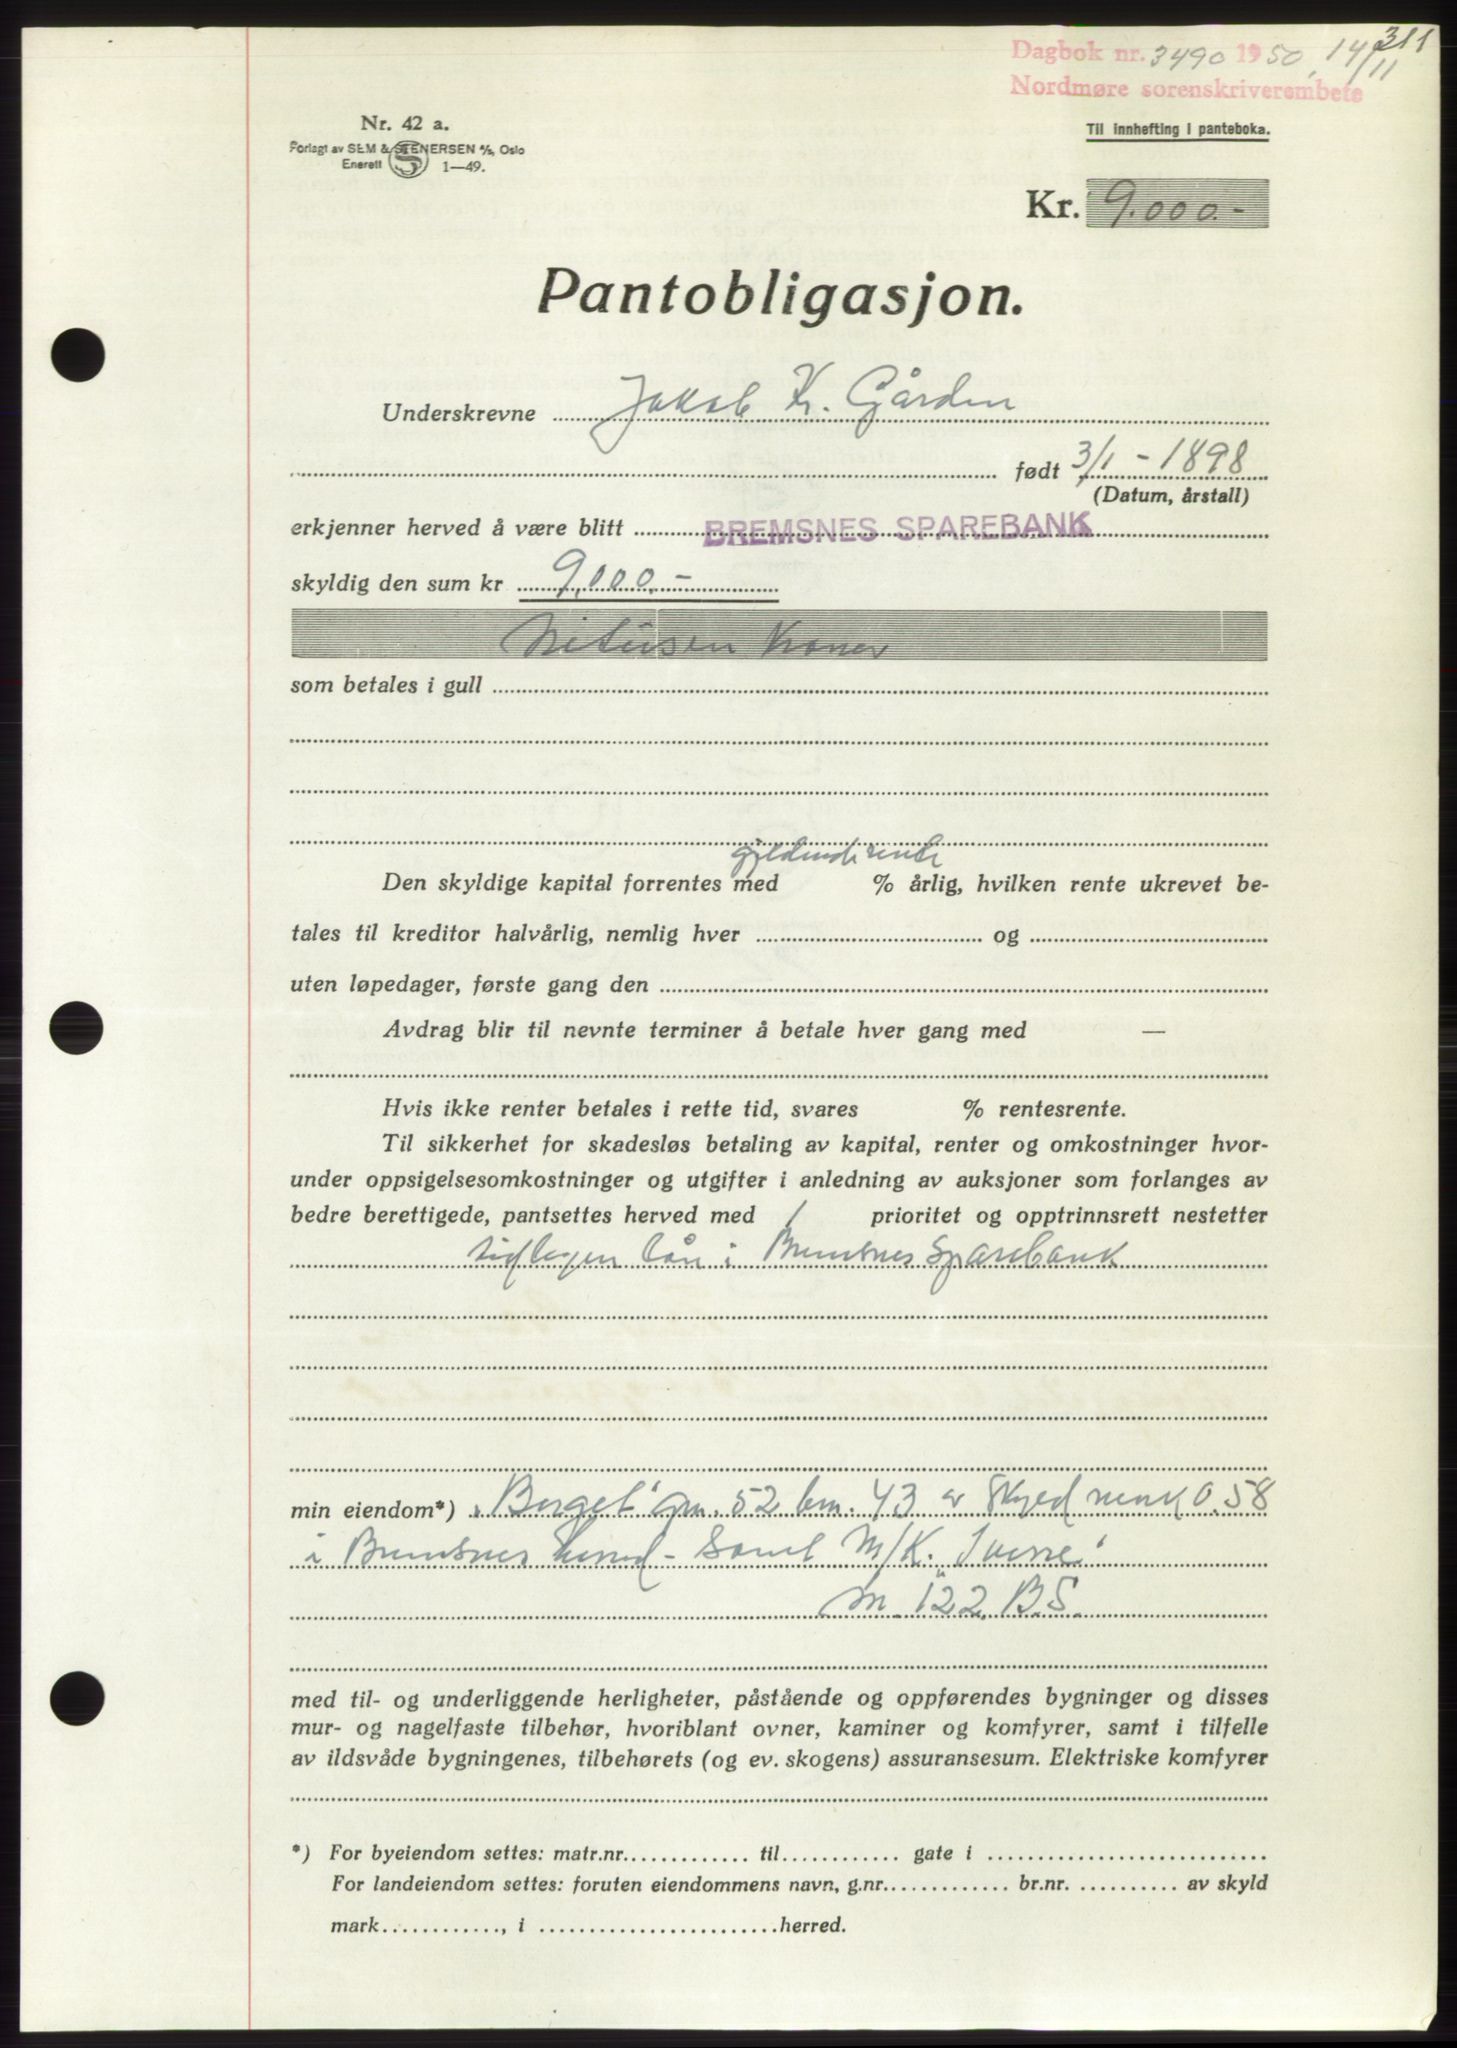 311
Dagbok nr. 3490 1950, 14/11
Nordmøre sorenskriverembete
Nr. 42 a.
Forlagt av SEM & STENERSEN A/S, Oslo
Enerett S 1—49.
Til innhefting i panteboka.
Kr. 9.000.-
Pantobligasjon.
Underskrevne Jakob Kr. Gården
født 3/1 - 1898
(Datum, årstall)
erkjenner herved å være blitt BREMSNES SPAREBANK
skyldig den sum kr 9.000.-
Nitusen kroner
som betales i gull
gjeldende rente
Den skyldige kapital forrentes med % årlig, hvilken rente ukrevet be-
tales til kreditor halvårlig, nemlig hver og
uten løpedager, første gang den
Avdrag blir til nevnte terminer å betale hver gang med —
Hvis ikke renter betales i rette tid, svares % rentesrente.
Til sikkerhet for skadesløs betaling av kapital, renter og omkostninger hvor-
under oppsigelsesomkostninger og utgifter i anledning av auksjoner som forlanges av
bedre berettigede, pantsettes herved med 1 prioritet og opptrinnsrett nestetter
lån i Bremsnes Sparebank
min eiendom*) "Berget" gnr. 52 bnr. 43 av Skyld mark 0.58
i Bremsnes herred - Samt M/K. "Sverre"
M. 122. B.S.
med til- og underliggende herligheter, påstående og oppførendes bygninger og disses
mur- og nagelfaste tilbehør, hvoriblant ovner, kaminer og komfyrer, samt i tilfelle
av ildsvåde bygningenes, tilbehørets (og ev. skogens) assuransesum. Elektriske komfyrer
*) For byeiendom settes: matr.nr. til gate i
For landeiendom settes: foruten eiendommens navn, g.nr. br.nr. av skyld
mark , i herred.